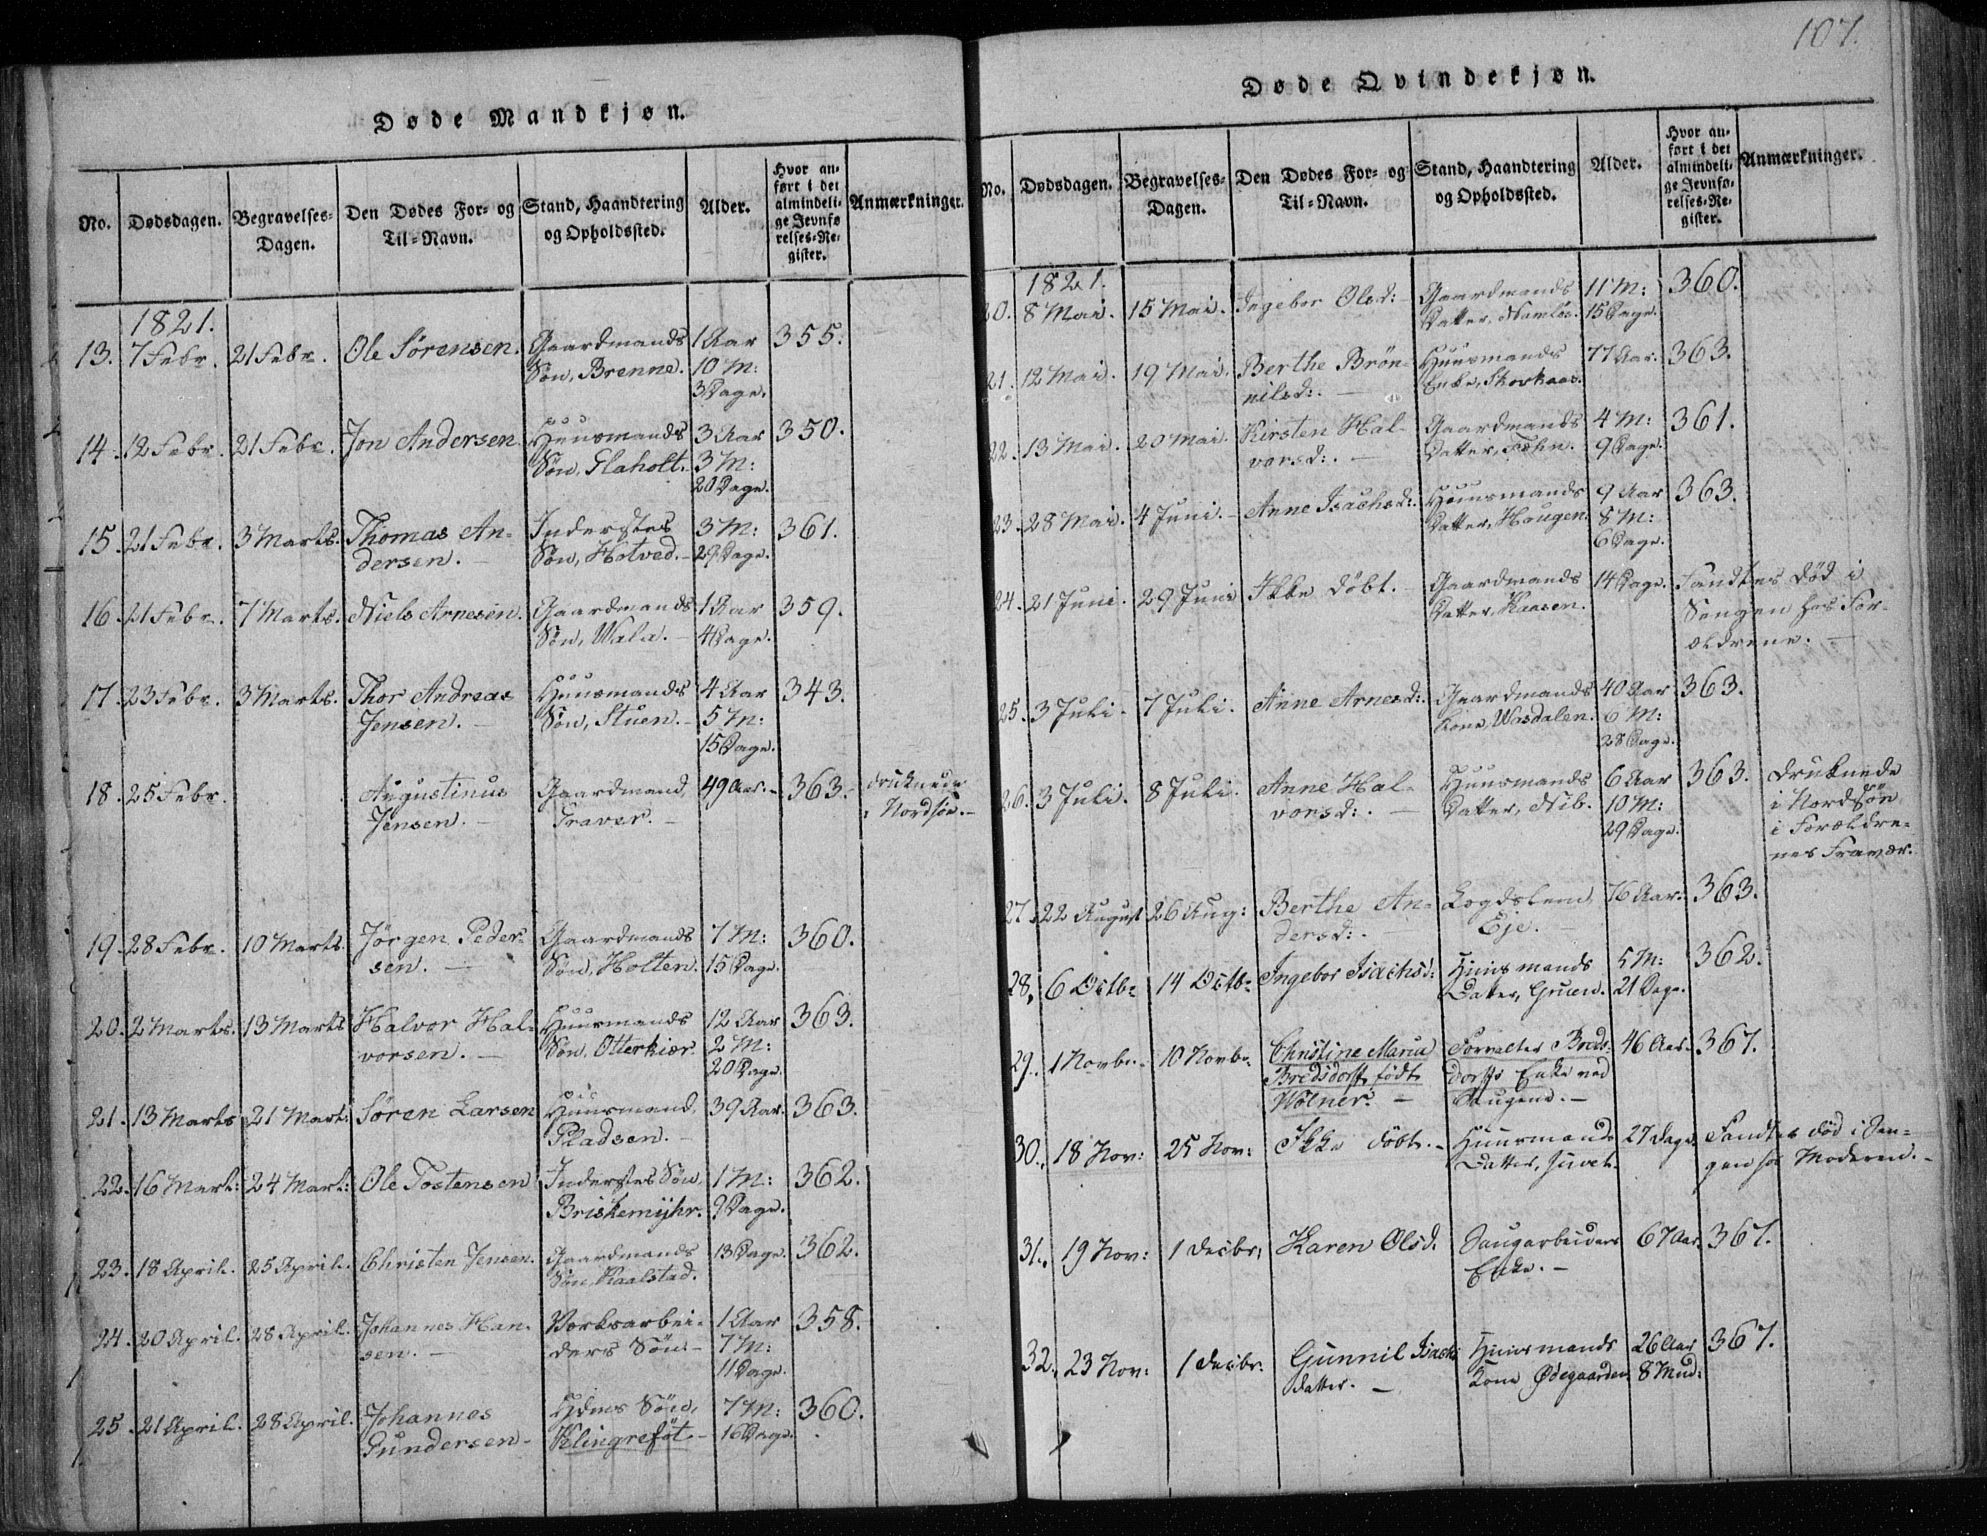 107.
Døde Mandkjøn.
No.
Dødsdagen.
Begravelses-
Dagen.
Den Dødes For- og
Til-Navn.
Stand, Haandtering
og Opholdssted.
Alder.
Hvor an-
ført i det
almindeli-
ge Jevnfø
relses-Re-
gister.
Anmærkninger.
1821.
13. 7 Febr. 21 Febr. Ole Sørensen. Gaardmands 1 Aar 355.
Søn, Brenne. 10 M:
3 Dage.
14. 12 Febr. 21 Febr. Jon Andersen. Huusmands 3 Aar 350.
Søn, Flaholt. 3 M:
20 Dage.
15. 21 Febr. 3 Marts. Thomas An- Inderstes 3 M: 361.
dersen. – Søn, Hotved. – 29 Dage.
16. 21 Febr. 7 Marts. Niels Arnesen. Gaardmands 1 Aar 359.
Søn, Wala. – 4 Dage.
17. 23 Febr. 3 Marts. Thor Andreas Huusmands 4 Aar 343.
Jensen. – Søn, Stuen. – 5 M:
15 Dage.
18. 25 Febr. Augustinus Gaardmand 49 Aar. – 363. druknede
Jensen. – Traver. – i Nordsiø. –
19. 28 Febr. 10 Marts. Jørgen Peder- Gaardmands 7 M: 360.
sen. – Søn, Holten. 15 Dage.
20. 2 Marts. 13 Marts Halvor Hal- Huusmands 12 Aar 363.
vorsen. – Søn, Otterkiær. 2 M:
20 Dage.
21. 13 Marts 21 Mart: Søren Larsen Huusmand, 39 Aar. 363.
Pladsen. –
22. 16 Mart: 24 Mart: Ole Tostensen Inderstes Søn, 1 M: 362.
Briskemyhr. 9 Dage.
23. 18 April. 25 April. Christen Jensen. Gaardmands 13 Dage. 362.
Søn, Kaalstad.
24. 20 April. 28 April. Johannes Han- Verksarbei- 1 Aar 358.
sen. – ders Søn – 7 M:
11 Dage.
25. 21 April. 28 April. Johannes Søn, 7 M: 360.
Gundersen – Klingrefót. – 16 Dage.
Døde Qvindekjøn.
No.
Dødsdagen.
Begravelses-
Dagen.
Den Dødes For- og
Til-Navn.
Stand, Haandtering
og Opholdssted.
Alder.
Hvor an-
ført i det
almindeli-
ge Jevnfø-
relses-Re-
gister.
Anmærkninger.
1821.
20. 8 Mai. 15 Mai. Ingebor Olsd: – Gaardmands 11 M: 360.
Datter, Namløs. 15 Dage.
21. 12 Mai. 19 Mai. Berthe Brøn- Huusmands 77 Aar. 363.
nilsd:. – Enke, Skorkaas.
22. 13 Mai. 20 Mai. Kirsten Hal- Gaardmands 4 M: 361.
vorsd:. – Datter, Fehn. 9 Dage.
23. 28 Mai. 4 Juni. – Anne Isachsd:. Huusmands 9 Aar 363.
Datter, Haugen. 8 M:
6 Dage.
24. 21 Juni. 29 Juni Ikke døbt. – Gaardmands 14 Dage. Fandtes død i
Datter, Kaasen. Sengen hos For-
ældrene. –
25. 3 Juli. 7 Juli. Anne Arnesd:. Gaardmands 40 Aar 363.
Kone, Wasdalen. 6 M:
28 Dage.
26. 3 Juli. 8 Juli. Anne Hal- Huusmands 6 Aar 363. druknede
vorsd:. – Datter, Nib. 10 M: i Nordsøn
29 Dage. i Forældre-
nes Fravær.
27. 22 August 26 Aug: Berthe An- Logdslem, 76 Aar. 363.
dersd:. Eje. –
28. 6 Octbr 14 Octbr Ingebor Isachsd: Huusmands 5 M: 362.
Datter, Gruen. 21 Dage.
29. 1 Novbr. 10 Novbr. Christine Maria Forvalter Breds- 46 Aar. 367.
Bredsdorff, født dorffs Enke ved
Wølner. – Saugene. –
30. 18 Nov: 25 Nov: Ikke døbt. – Huusmands 27 Dage Fandtes død i Sen-
Datter, Juvet. gen hos Moderen. –
31. 19 Nov: 1 Decbr: Karen Olsd. Saugarbeiders 67 Aar. 367.
Enke. –
32. 23 Nov: 1 Decbr: Gunnil Isachs Huusmands 26 Aar 367.
datter. – Kone Ødegaarden 8 Mnd: